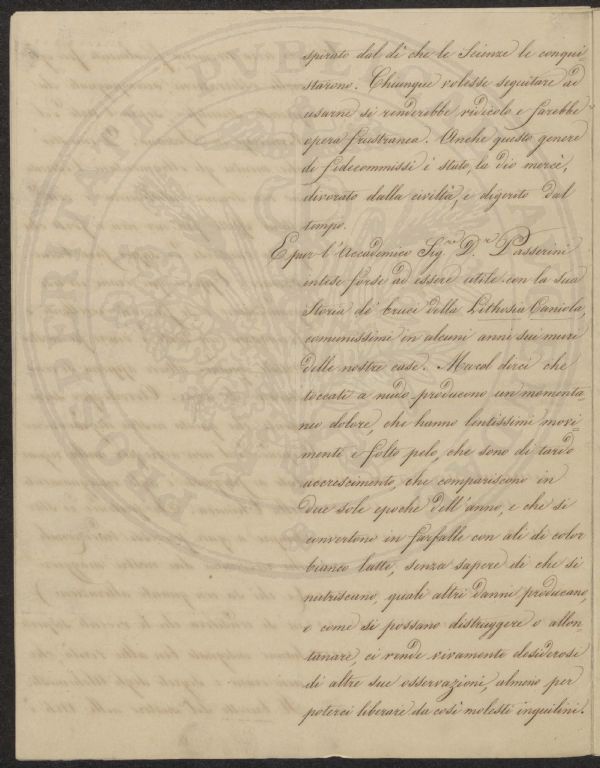 spirato dal dì che le Scienze le conqui=
starono. Chiunque volesse seguitare ad
usarne si renderebbe ridicolo e farebbe
opera frustranea. Anche questo genere
di fidecommissi è stato, la dio mercè,
divorato dalla civiltà, e digerito dal
tempo.
E pur l'Accademico Sig.re D.r Passerini
intese forse ad essere utile con la sua
Storia de' bruci della Lithosia Caniola,
comunissimi in alcuni anni sui muri
delle nostre case. Ma col dirci che
toccati a nudo producono un momenta=
neo dolore, che hanno lentissimi movi=
menti e folto pelo, che sono di tardo
accrescimento, che compariscono in
due sole epoche dell'anno, e che si
convertono in farfalle con ali di color
bianco latte, senza sapere di che si
nutriscano, quali altri danni producano,
e come si possano distruggere o allon=
tanare, ci rende vivamente desiderosi
di altre sue osservazioni, almeno per
poterci liberare da così molesti inquilini.